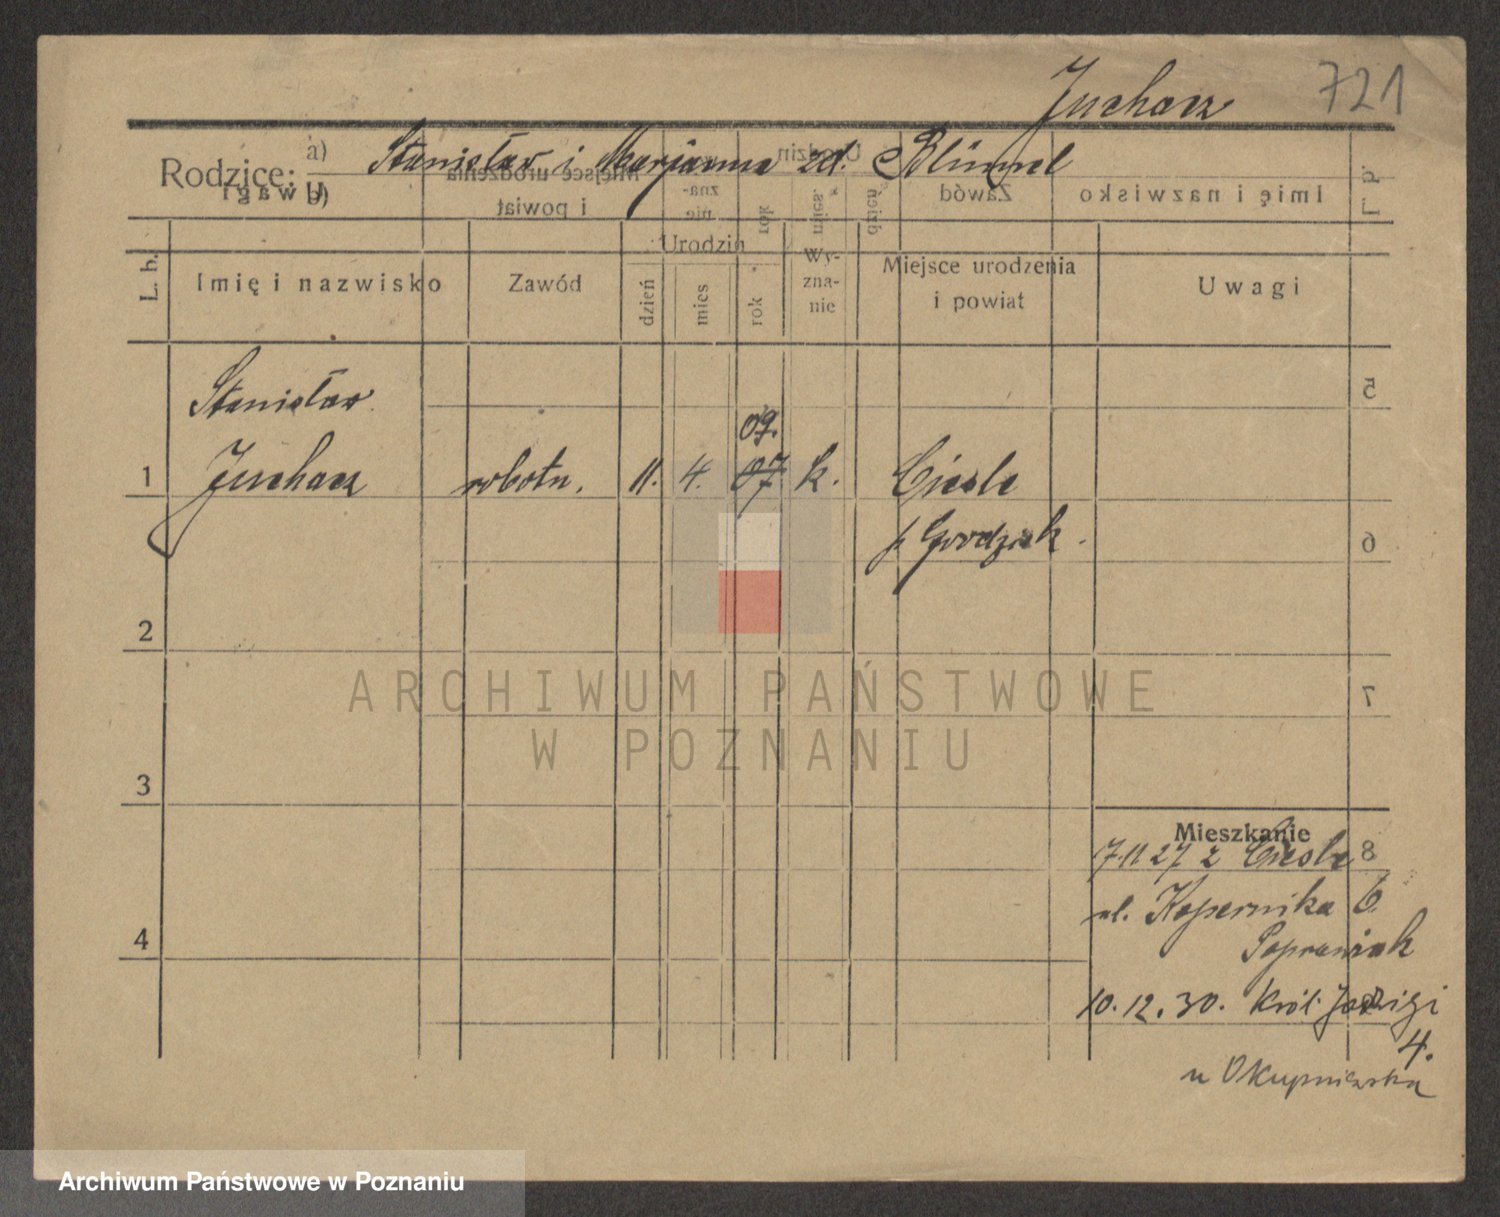 Juchacz 721
Rodzice: a) Stanisław i Marjanna zd. Blümel
b)
L. b. Imię i nazwisko Zawód Urodzin dzień mies rok Wy-zna-nie Miejsce urodzenia i powiat Uwagi
Stanisław
09.
1 Juchacz robotn. 11. 4. 07 k. Ciesle
p Grodzisk.
2
3
4
Mieszkanie
7 11 27 z Ciesle
ul. Kopernika 6
Poprawiak
10.12.30. Król. Jadwigi
4.
u Okupniarska
ARCHIWUM PAŃSTWOWE
W POZNANIU
Archiwum Państwowe w Poznaniu